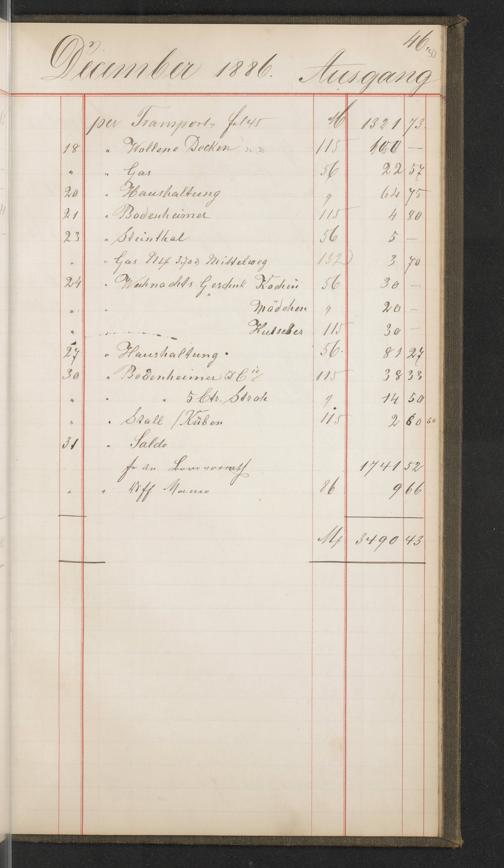 46.
December 1886. Ausgang
per Transport fol 45 M 1321 73
18 " Wollene Decken 115 100 —
" " Gas 56 22 57
20 " Haushaltung " 64 75
21 " Bodenheimer 115 4 80
23 " Steinthal 56 5 —
" " Gas Mittelweg 132 3 70
24 " Weihnachts Geschenk Kochin 56 30 —
" " Mädchen " 20 —
" " Kutscher 115 30 —
27 " Haushaltung. 56 81 27
30 " Bodenheimer & Cie 115 38 33
" " " 5 Ctr. Stroh " 14 50
" " Stall / Kübon 115 2 60
31 " Saldo
1741 52
" " Diff 86 9 66
M 3490 43